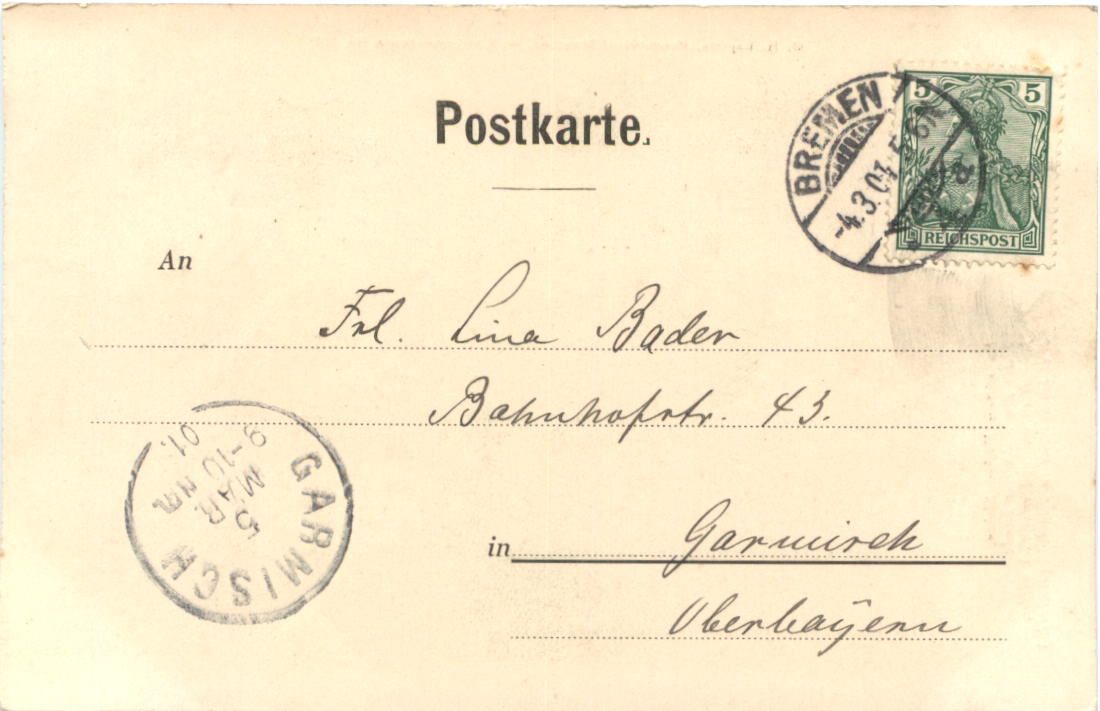 Postkarte.
BREMEN
-4.3.01.5-6N
5 5
REICHSPOST
An
Frl. Lina Bader
Bahnhofstr. 43.
GARMISCH
5
MAR
9-10 NM
01.
in Garmisch
Oberbayern